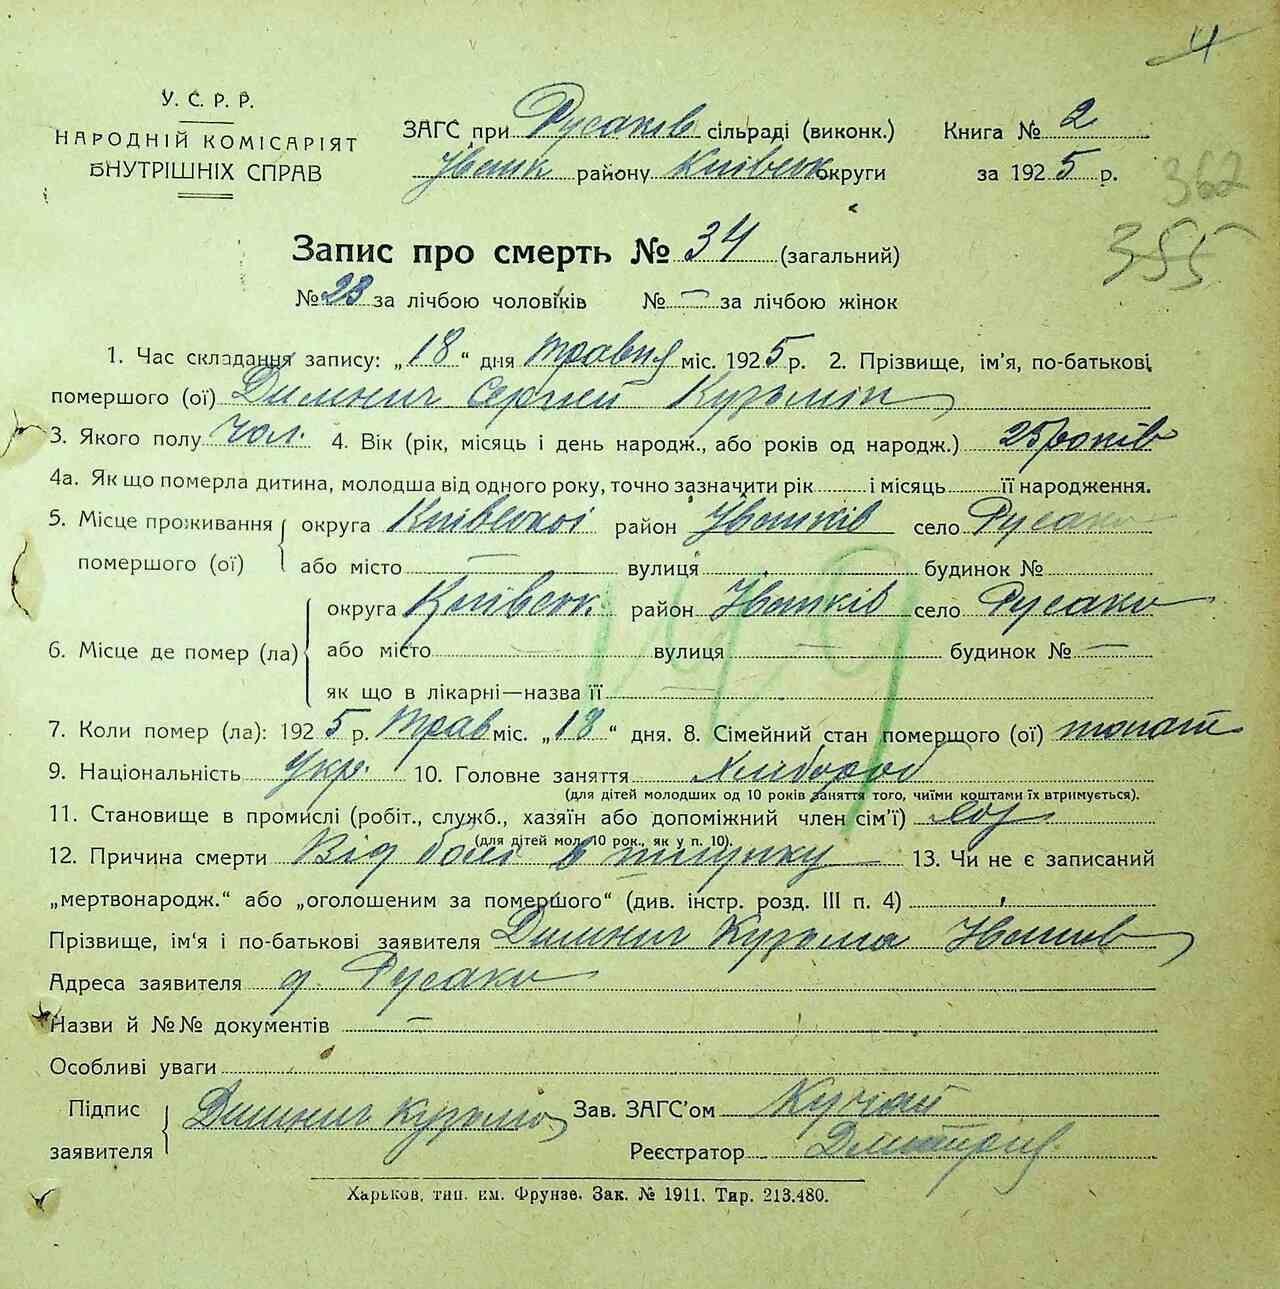 4
У. С. Р. Р.
НАРОДНІЙ КОМІСАРІЯТ
ВНУТРІШНІХ СПРАВ
ЗАГС при Русаків сільраді (виконк.)
Іванк району Київськ округи
Книга № 2
за 1925 р.
362
355
Запис про смерть № 34 (загальний)
№ 23 за лічбою чоловіків № — за лічбою жінок
1. Час складання запису: „18“ дня травня міс. 1925 р. 2. Прізвище, ім’я, по-батькові
помершого (ої) Сергей Кузьмін
3. Якого полу чол. 4. Вік (рік, місяць і день народж., або років од народж.) 25 років
4а. Як що померла дитина, молодша від одного року, точно зазначити рік і місяць її народження.
5. Місце проживання помершого (ої) округа Київської район Іванків село Русаки
або місто — вулиця будинок №
6. Місце де помер (ла) округа Київськ. район Іванків село Русаки
або місто — вулиця — будинок № —
як що в лікарні—назва її —
7. Коли помер (ла): 1925 р. Трав міс. „18“ дня. 8. Сімейний стан помершого (ої)
9. Національність Укр. 10. Головне заняття Хлібороб
(для дітей молодших од 10 років заняття того, чиїми коштами їх втримується).
11. Становище в промислі (робіт., служб., хазяїн або допоміжний член сім’ї)
(для дітей мол. 10 рок., як у п. 10).
12. Причина смерти Від болі в шлунку — 13. Чи не є записаний
„мертвонародж.“ або „оголошеним за помершого“ (див. інстр. розд. III п. 4)
Прізвище, ім‘я і по-батькові заявителя Кузьма Іванов
Адреса заявителя д. Русаки
Назви й №№ документів —
Особливі уваги
Підпис заявителя Кузьма
Зав. ЗАГС’ом
Реєстратор
Харьков, тип. им. Фрунзе. Зак. № 1911. Тир. 213.480.